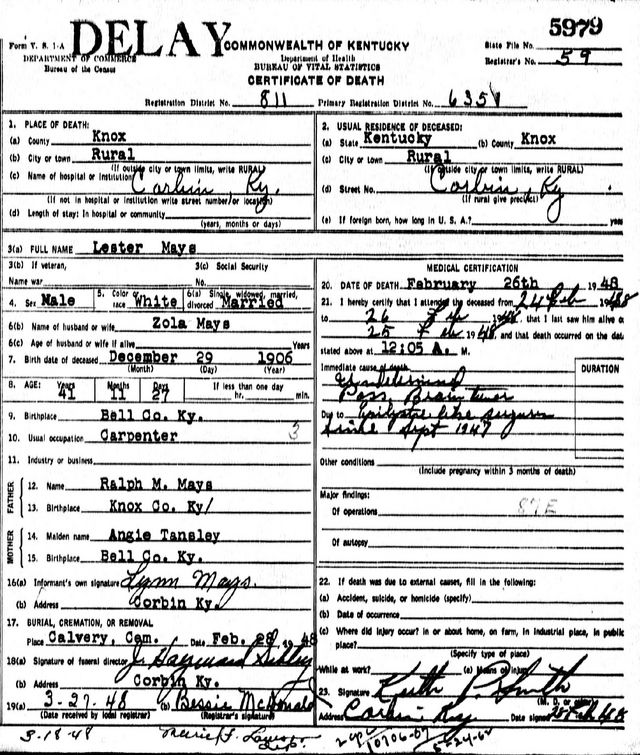 5979
Form V. S. 1-A
DELAY
COMMONWEALTH OF KENTUCKY
State File No.
DEPARTMENT OF COMMERCE
Bureau of the Census
Department of Health
BUREAU OF VITAL STATISTICS
Registrar's No. 59
CERTIFICATE OF DEATH
Registration District No. 811 Primary Registration District No. 6351
1. PLACE OF DEATH:
(a) County Knox
(b) City or town Rural
(If outside city or town limits, write RURAL)
(c) Name of hospital or institution Corbin, Ky.
(If not in hospital or institution write street number or location)
(d) Length of stay: In hospital or community
(years, months or days)
2. USUAL RESIDENCE OF DECEASED:
(a) State Kentucky (b) County Knox
(c) City or town Rural
(If outside city or town limits, write RURAL)
(d) Street No. Corbin, Ky
(If rural give precinct)
(e) If foreign born, how long in U. S. A.? years
3(a) FULL NAME Lester Mays
3(b) If veteran,
Name war
3(c) Social Security
No.
4. Sex Male
5. Color or race White
6(a) Single, widowed, married, divorced Married
6(b) Name of husband or wife Zola Mays
6(c) Age of husband or wife if alive Years
7. Birth date of deceased December 29 1906
(Month) (Day) (Year)
8. AGE: Years 41 Months 11 Days 27 If less than one day hr. min.
9. Birthplace Bell Co. Ky.
10. Usual occupation Carpenter 3
11. Industry or business
FATHER
12. Name Ralph M. Mays
13. Birthplace Knox Co. Ky/
MOTHER
14. Maiden name Angie Tansley
15. Birthplace Bell Co. Ky.
16(a) Informant's own signature Lynn Mays.
(b) Address Corbin Ky.
17. BURIAL, CREMATION, OR REMOVAL
Place Calvery, Cem. Date Feb. 28 1948
18(a) Signature of funeral director J. Hayward
(b) Address Corbin Ky.
19(a) 3-27-48 (b) Bessie McDonald
(Date received by local registrar) (Registrar's signature)
3-18-48
MEDICAL CERTIFICATION
20. DATE OF DEATH February 26th 1948
21. I hereby certify that I attended the deceased from 24 Feb 1948
to 26 Feb 1948, that I last saw him alive on
25 Feb 1948, and that death occurred on the date
stated above at 12:05 A. M.
Immediate cause of death
DURATION
Undetermined
Poss. Brain tumor
Due to Epilepsy like seizures
since Sept 1947
Other conditions
(Include pregnancy within 3 months of death)
Major findings:
Of operations 87E
Of autopsy
22. If death was due to external causes, fill in the following:
(a) Accident, suicide, or homicide (specify)
(b) Date of occurrence
(c) Where did injury occur? in or about home, on farm, in industrial place, in public
place?
(Specify type of place)
While at work? (e) Means of injury
23. Signature Keith P Smith
(M. D. or other)
Address Corbin Ky Date signed 28 Feb 48